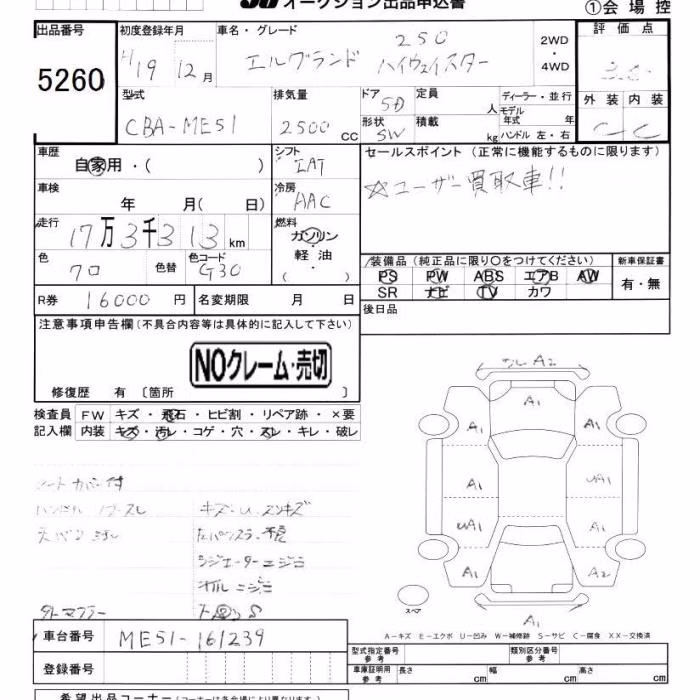 オークション出品申込書 ①会場控
出品番号 初度登録年月 車名・グレード 2WD・4WD 評価点
5260 H19 12月 エルグランド 250 ハイウェイスター
型式 排気量 ドア 定員 ディーラー・並行 外装 内装
CBA-ME51 2500 CC 5D 人 モデル年式 年 C C
形状 積載
SW kg ハンドル 左・右
車歴 シフト セールスポイント (正常に機能するものに限ります)
自家用・( ) IAT ☆ユーザー買取車!!
車検 年 月( 日) 冷房 AAC
走行 17万3千313km 燃料 ガソリン・軽油・( )
色 クロ 色替 色コード G30
装備品 (純正品に限り○をつけてください) 新車保証書
PS PW ABS エアB AW 有・無
SR ナビ TV カワ
R券 16000円 名変期限 月 日 後日品
注意事項申告欄(不具合内容等は具体的に記入して下さい)
NOクレーム・売切
修復歴 有 〔箇所 〕
検査員 FW キズ・飛石・ヒビ割・リペア跡・×要
記入欄 内装 キズ・汚レ・コゲ・穴・スレ・キレ・破レ
シートカバー付
ハンドル
キズ・U
ラジエーターニジミ
オイルニジミ
外マフラー
A2
A1
A1 A1
A1 UA1
UA1 A1
A1 A2
スペア
A1
A-キズ E-エクボ U-凹み W-補修跡 S-サビ C-腐食 XX-交換済
車台番号 ME51-161239 型式指定番号 参考 類別区分番号 参考
登録番号 車庫証明用 参考 長さ cm 幅 cm 高さ cm
希望出品コーナー(コーナーは各会場により異なります)